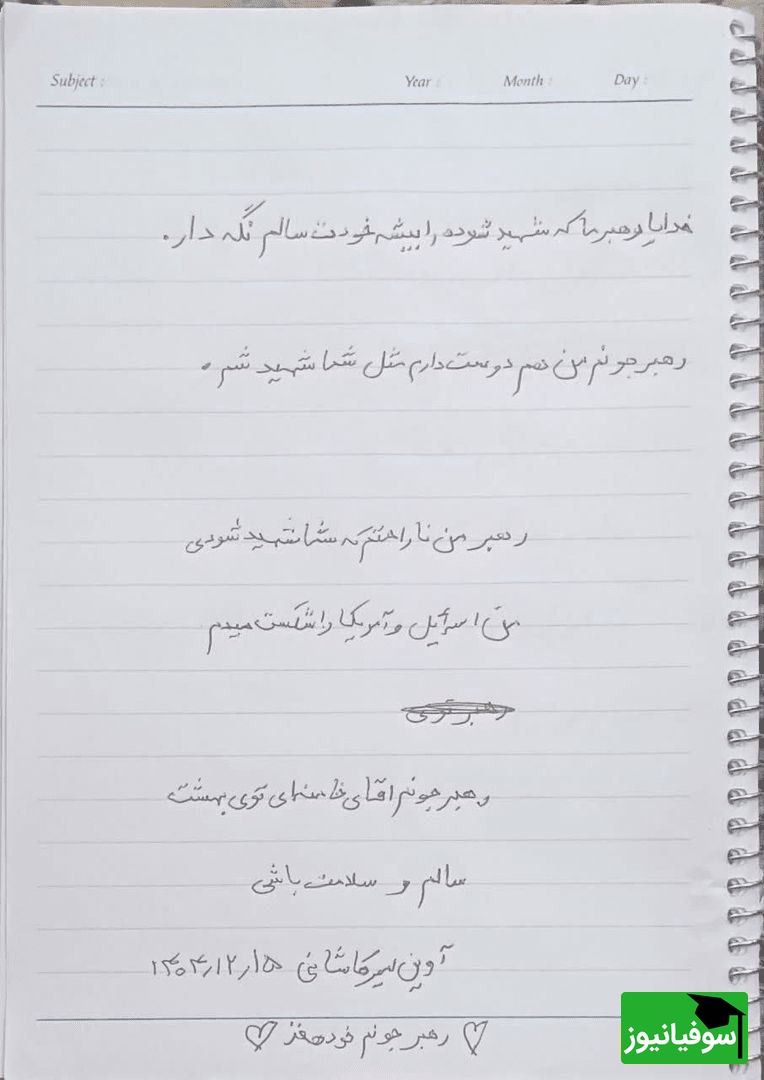 Subject : Year : Month : Day :
خدایا رهبر ما که شهید شوده را پیشه خودت سالم نگه دار .
رهبر جونم من هم دوست دارم مثل شما شهید شم .
رهبر من ناراحتم که شما شهید شودی
من اسرائیل و آمریکا را شکست میدم
رهبر توی
رهبر جونم اقای خامنه‌ای توی بهشت
سالم و سلامت باشی
آوین میرکاشانی ۱۴۰۴/۱۲/۱۵
♡ رهبر جونم خودهفز ♡
سوفیانیوز